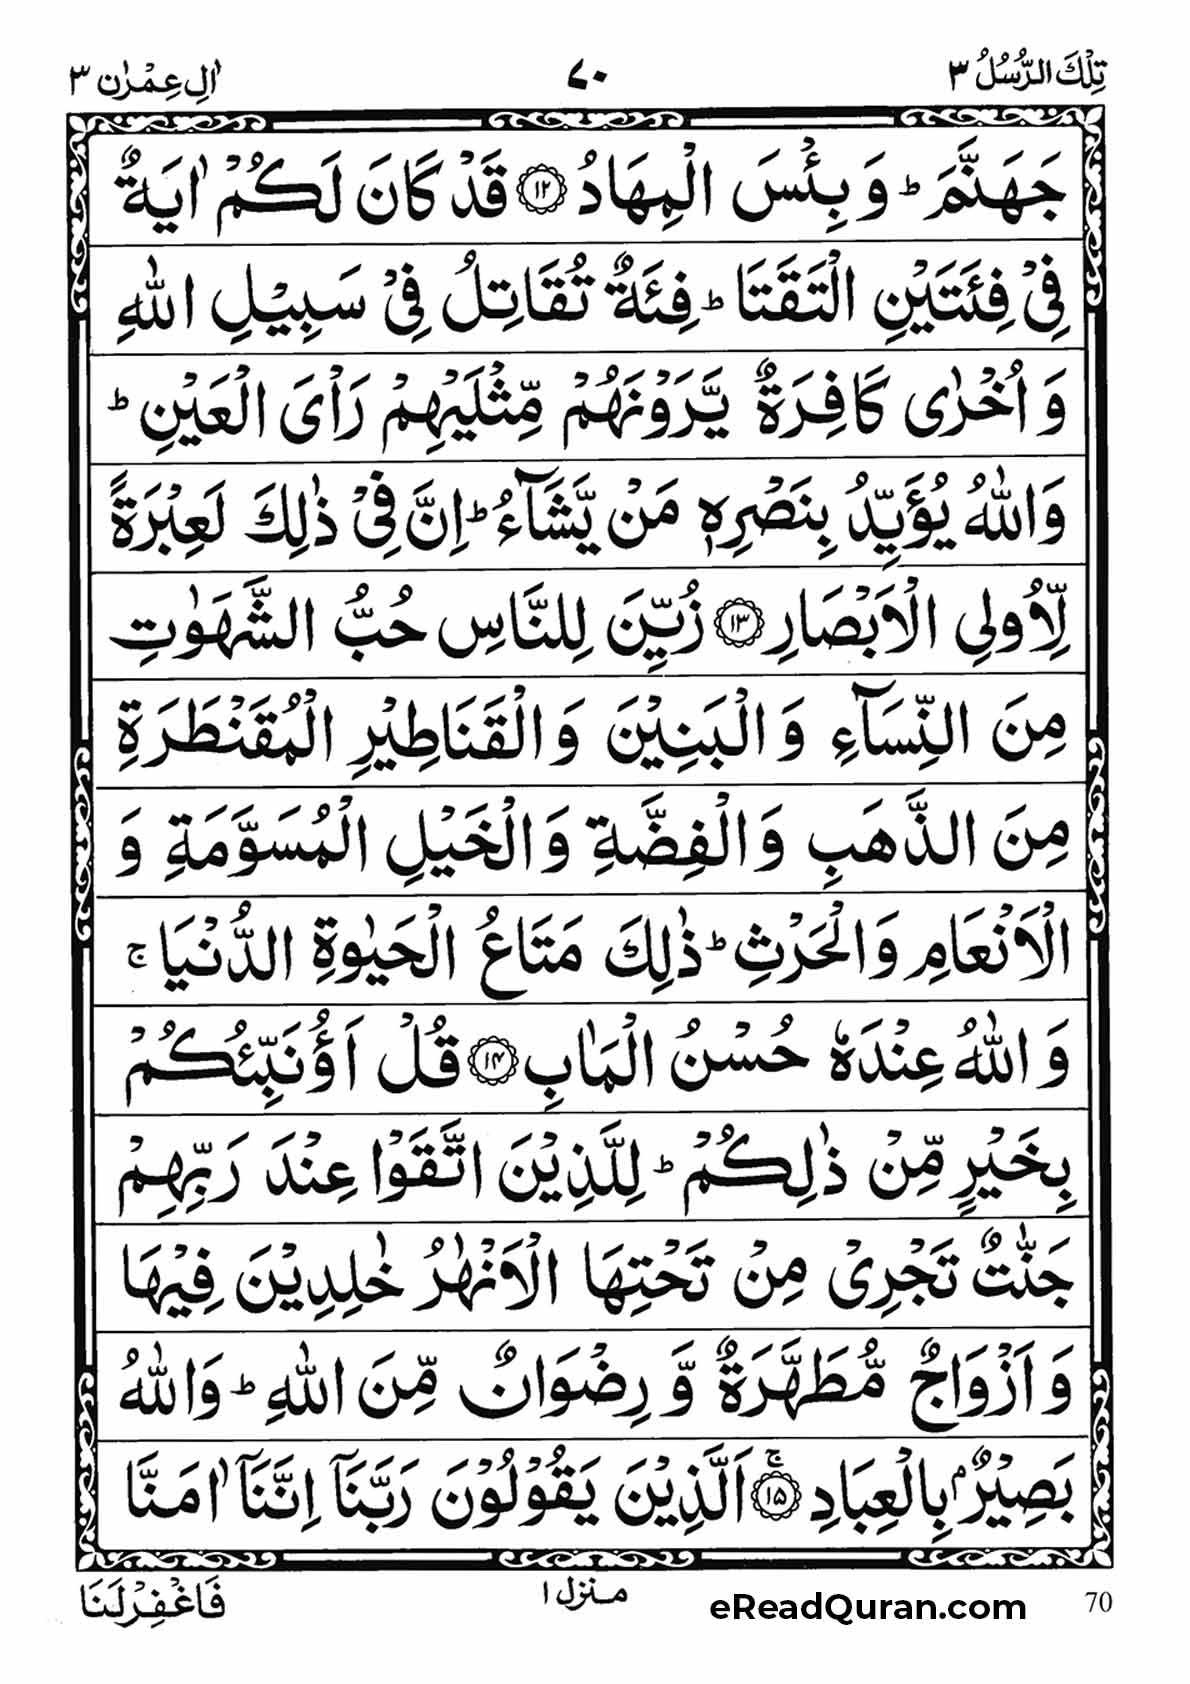 تِلْكَ الرُّسُلُ ٣ ٧٠ اٰلِ عِمْرٰن ٣
جَهَنَّمَ ؕ وَ بِئْسَ الْمِهَادُ ﴿۱۲﴾ قَدْ كَانَ لَكُمْ اٰيَةٌ
فِيْ فِئَتَيْنِ الْتَقَتَا ؕ فِئَةٌ تُقَاتِلُ فِيْ سَبِيْلِ اللّٰهِ
وَ اُخْرٰى كَافِرَةٌ يَّرَوْنَهُمْ مِّثْلَيْهِمْ رَاْىَ الْعَيْنِ ؕ
وَاللّٰهُ يُؤَيِّدُ بِنَصْرِهٖ مَنْ يَّشَآءُ ؕ اِنَّ فِيْ ذٰلِكَ لَعِبْرَةً
لِّاُولِي الْاَبْصَارِ ﴿۱۳﴾ زُيِّنَ لِلنَّاسِ حُبُّ الشَّهَوٰتِ
مِنَ النِّسَآءِ وَ الْبَنِيْنَ وَ الْقَنَاطِيْرِ الْمُقَنْطَرَةِ
مِنَ الذَّهَبِ وَ الْفِضَّةِ وَ الْخَيْلِ الْمُسَوَّمَةِ وَ
الْاَنْعَامِ وَ الْحَرْثِ ؕ ذٰلِكَ مَتَاعُ الْحَيٰوةِ الدُّنْيَا ۚ
وَ اللّٰهُ عِنْدَهٗ حُسْنُ الْمَاٰبِ ﴿۱۴﴾ قُلْ اَؤُنَبِّئُكُمْ
بِخَيْرٍ مِّنْ ذٰلِكُمْ ؕ لِلَّذِيْنَ اتَّقَوْا عِنْدَ رَبِّهِمْ
جَنّٰتٌ تَجْرِيْ مِنْ تَحْتِهَا الْاَنْهٰرُ خٰلِدِيْنَ فِيْهَا
وَ اَزْوَاجٌ مُّطَهَّرَةٌ وَّ رِضْوَانٌ مِّنَ اللّٰهِ ؕ وَاللّٰهُ
بَصِيْرٌۢ بِالْعِبَادِ ﴿ۚ۱۵﴾ اَلَّذِيْنَ يَقُوْلُوْنَ رَبَّنَآ اِنَّنَآ اٰمَنَّا
فَاغْفِرْ لَنَا
منزل ١
eReadQuran.com
70